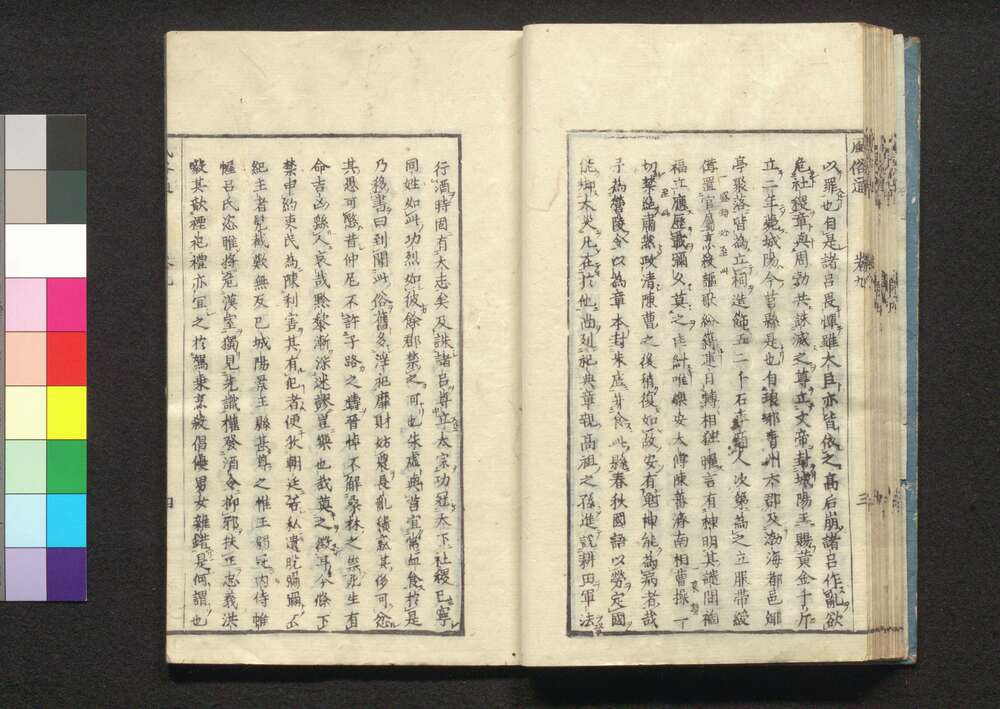 風俗通 卷九 三
以罪也自是諸呂畏憚雖大臣亦皆依之高后崩諸呂作亂欲
危社稷章與周勃共誅滅之尊立文帝封城陽王賜黃金千斤
立二年薨城陽今莒縣是也自琅琊青州六郡及渤海都邑鄉
亭聚落皆為立祠造飾五二千石車商人次第為之立服帶綬
備置官屬烹殺謳歌紛籍連日轉相誑曜言有神明其譴問禍
福立應歷載彌久莫之匡糾唯樂安太傅陳蕃濟南相曹操一
切禁絕肅然政清陳曹之後稍復如故安有鬼神能為病者哉
子為營陵令以為章本封朱虛并食此縣春秋國語以勞定國
能御大災凡在於他尚列祀典章親高祖之孫進說耕田軍法
行酒時固有大志矣及誅諸呂尊立太宗功冠天下社稷已寧
同姓如此功烈如彼餘郡禁之可也朱虛與莒宜常血食於是
乃移書曰到聞此俗舊多淫祀靡財妨農長亂積惑其侈可忿
其愚可愍昔仲尼不許子路之禱晉悼不解桑林之祟死生有
命吉凶繇人哀哉黔黎漸染迷謬豈樂也哉莫之徵耳今條下
禁申約吏民為陳利害其有犯者便收朝廷若私遺脫彌彌不
絕主者髡截歎無反已城陽景王縣甚尊之惟王弱冠內侍帷
幄呂氏恣睢將危漢室獨見先識權發酒令抑邪扶正忠義洪
毅其歆禋祀禮亦宜之於駕乘烹殺倡優男女雜錯是何謂也
四